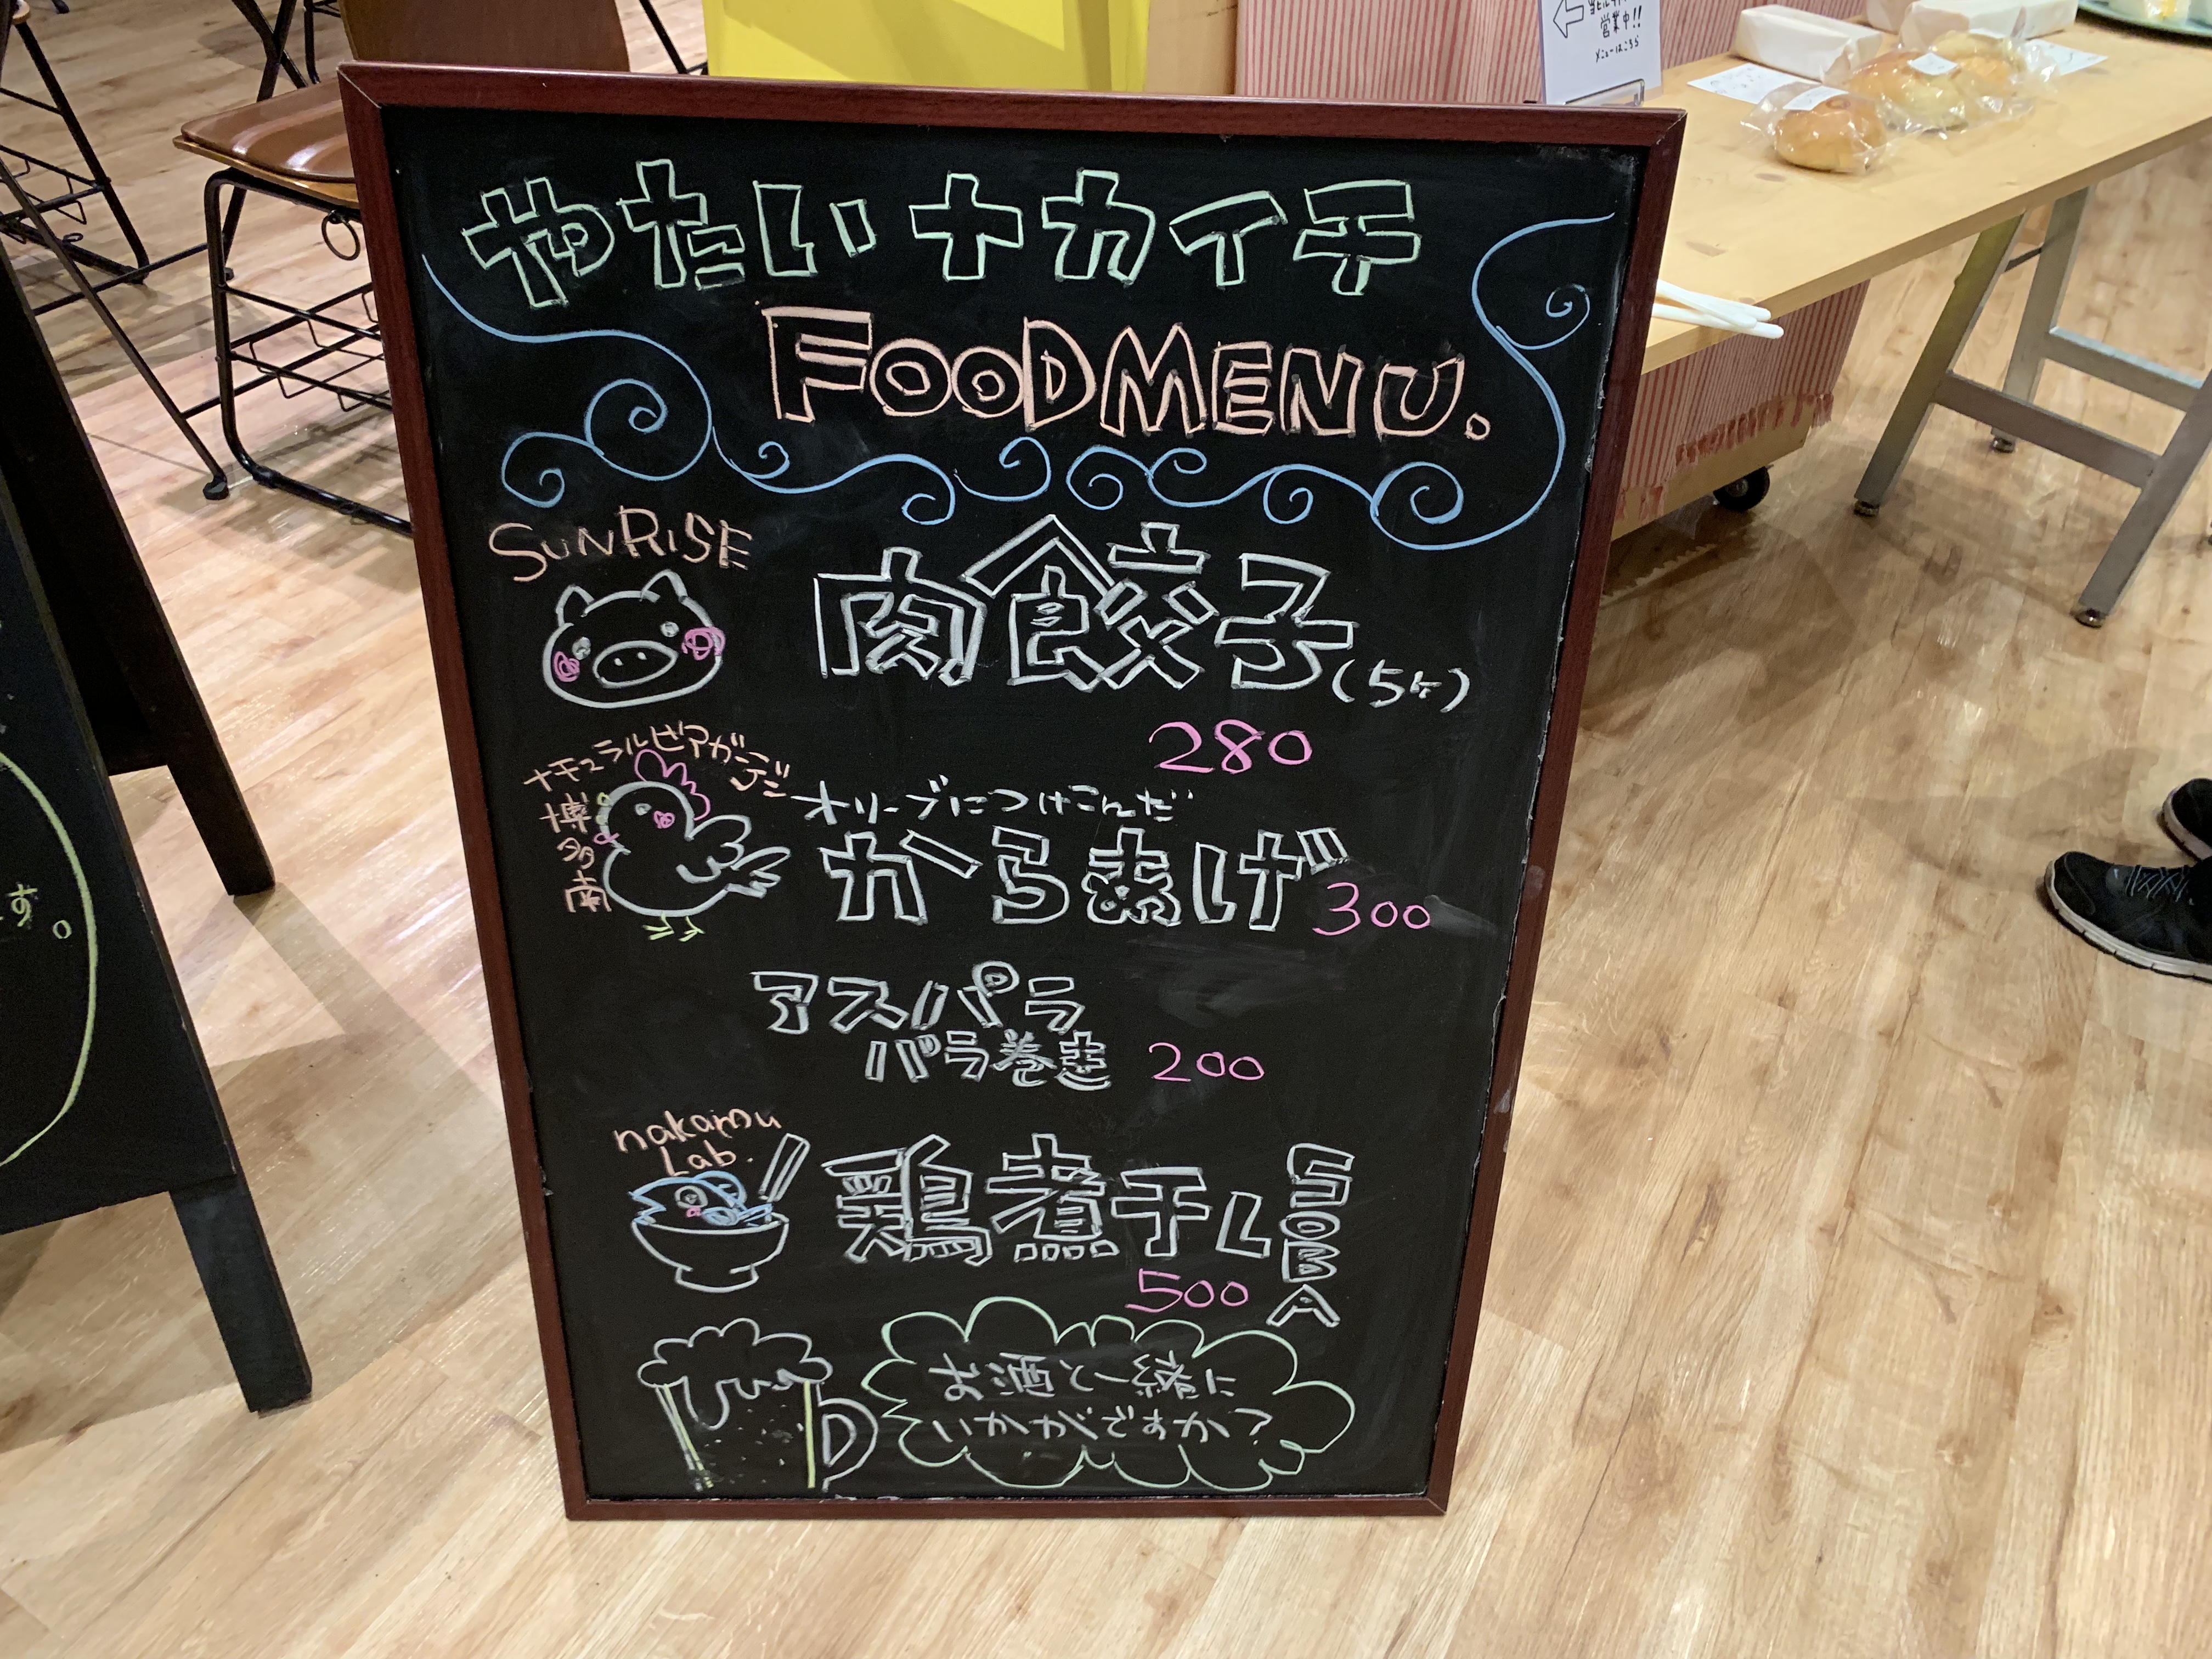 やたいナカイチ
FOODMENU.
SUNRISE
肉餃子(5ヶ)
280
ナチュラルビアガーデン
博多南
オリーブにつけこんだ
からあげ 300
アスパラ
バラ巻き 200
nakamu
Lab.
鶏煮干し
SOBA
500
お酒と一緒に
いかがですか?
営業中!!
メニューはこちら
す。